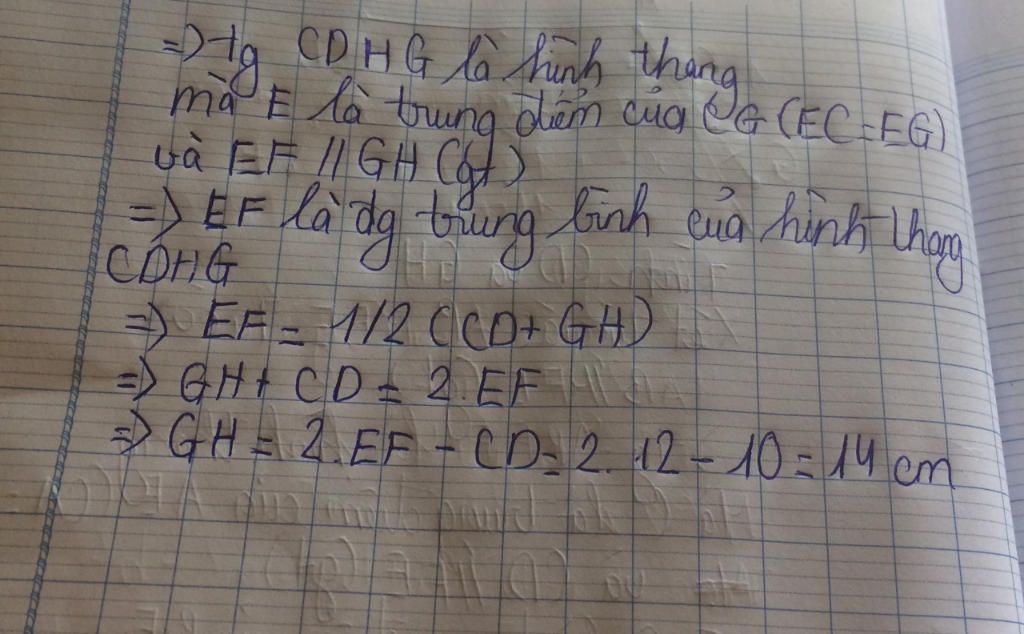 => tg CDHG là hình thang
mà E là trung điểm của CG (EC=EG)
và EF // GH (gt)
=> EF là đg trung bình của hình thang
CDHG
=> EF = 1/2 (CD+ GH)
=> GH + CD = 2.EF
=> GH = 2.EF - CD = 2. 12 - 10 = 14 cm